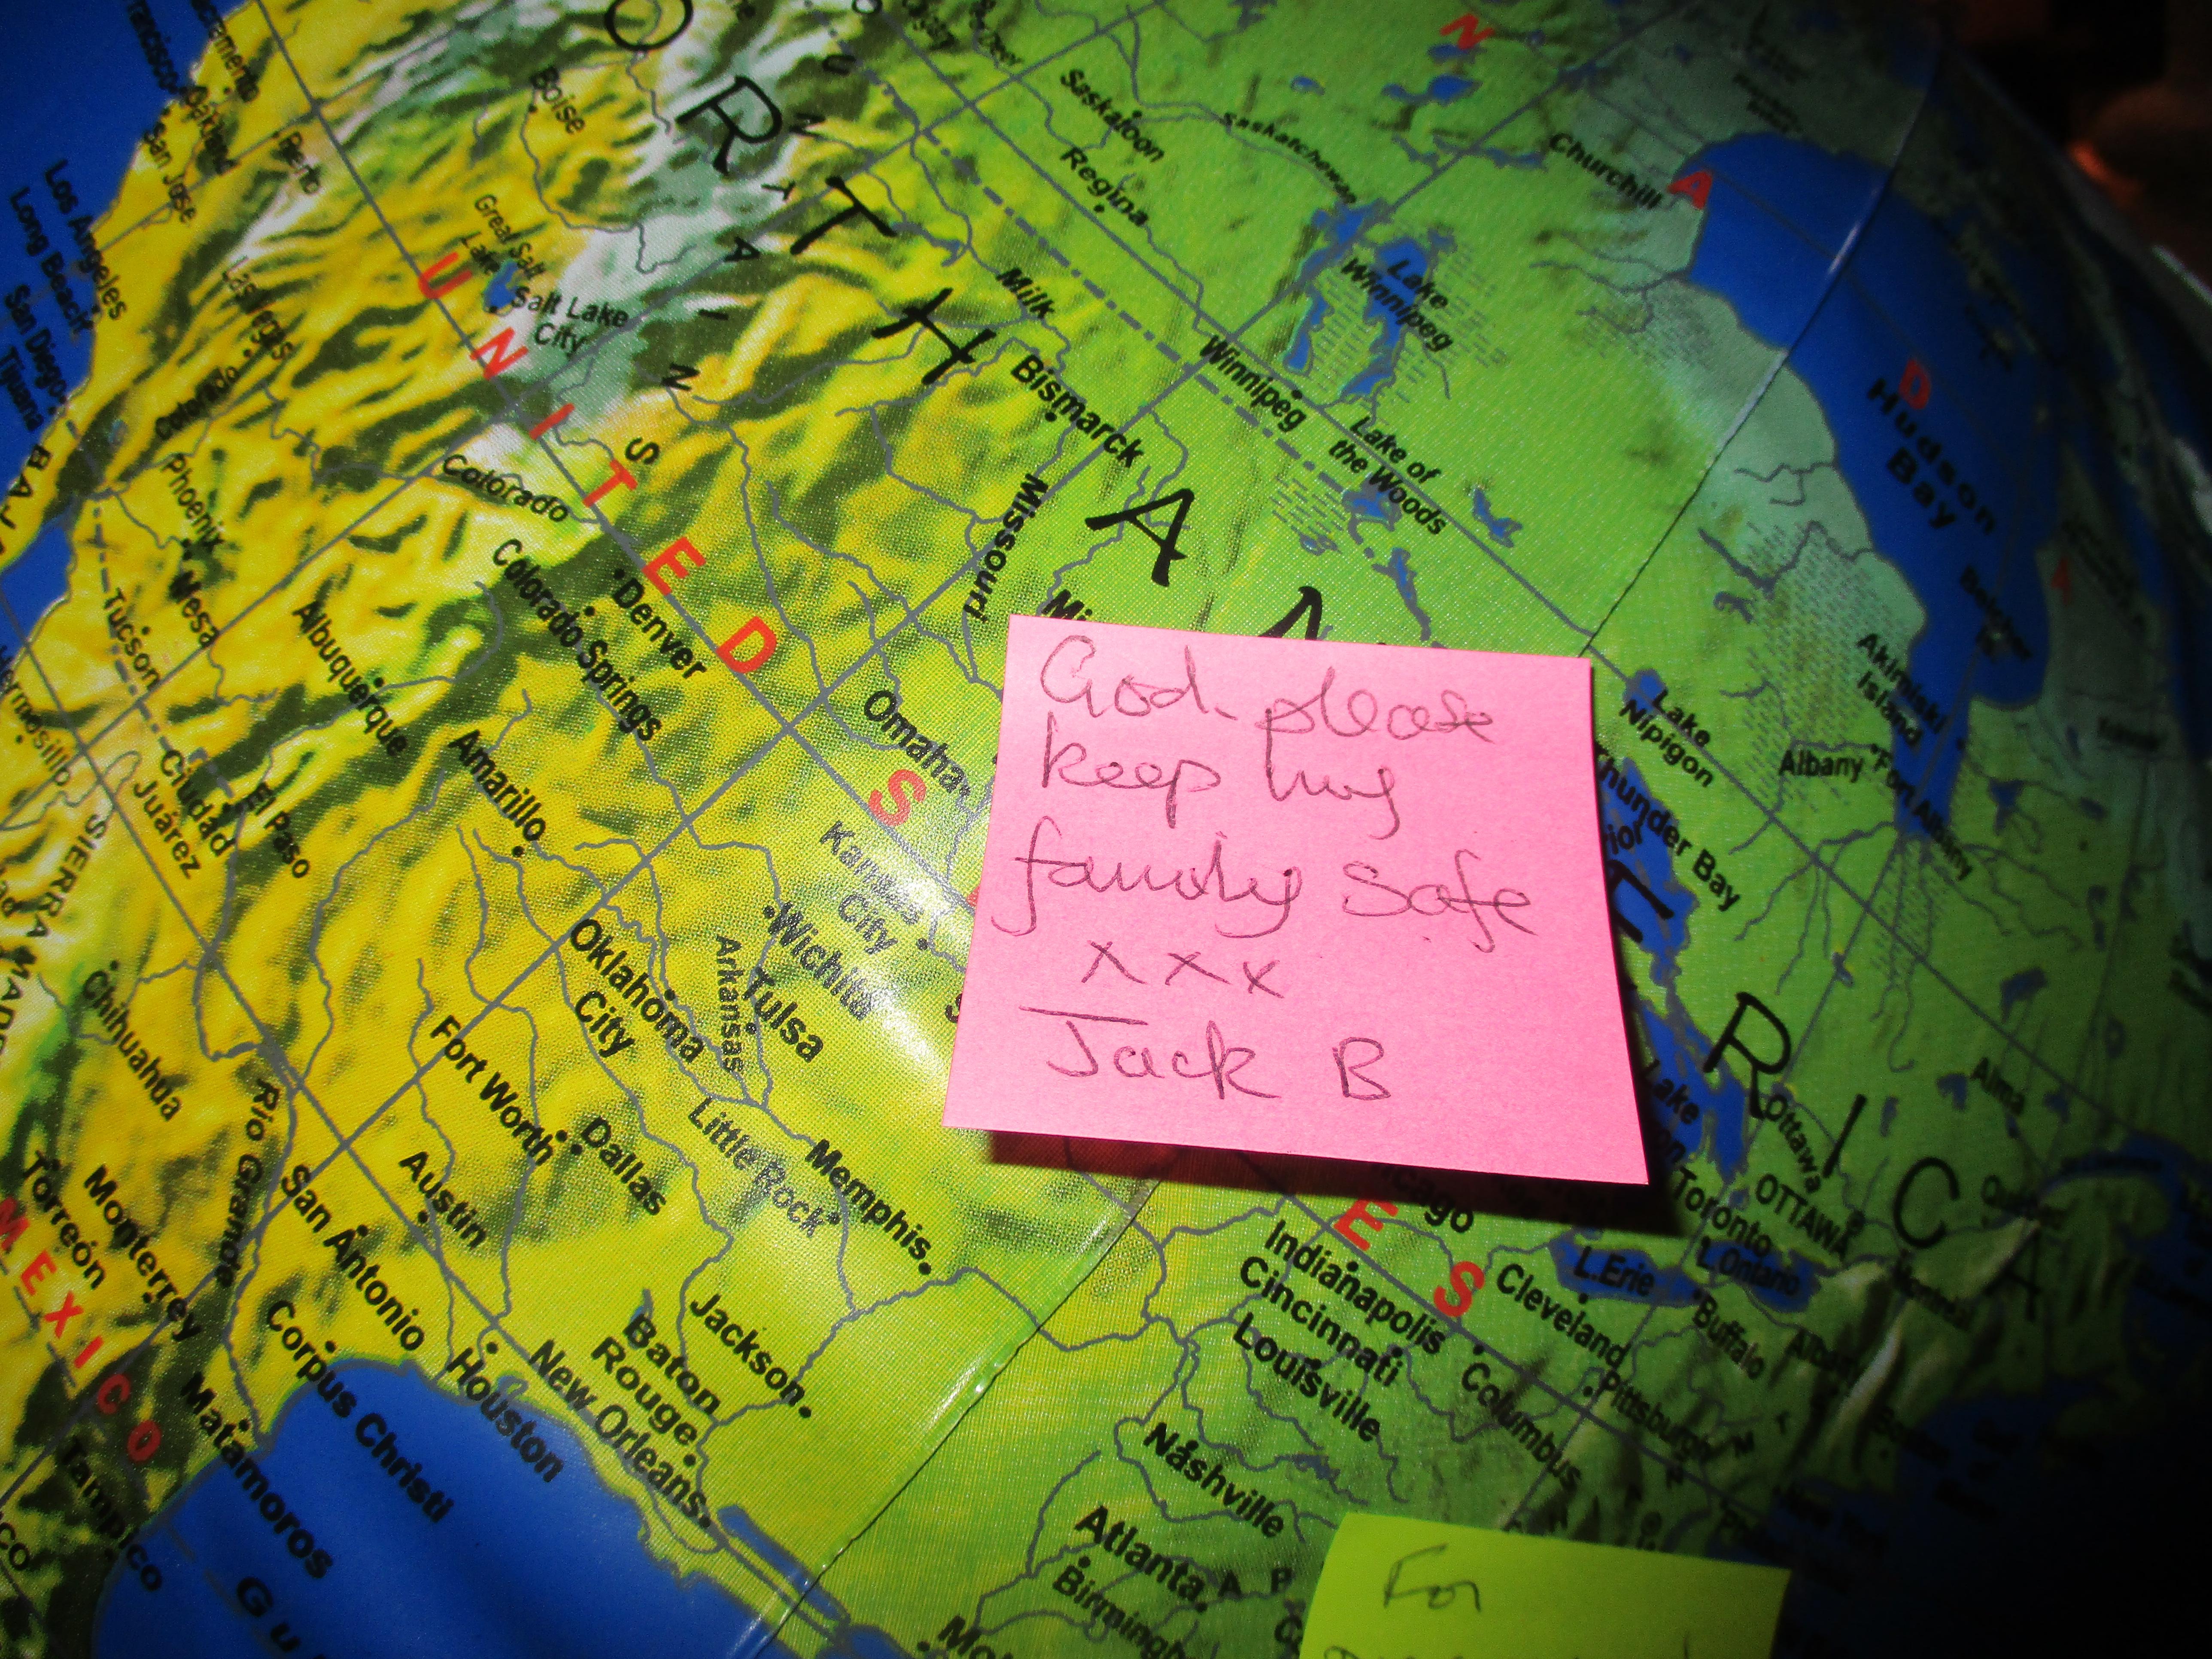 God please
keep my
family safe
xxx
Jack B
For
N O R T H A
R I C A
U N I T E D S
E S
M E X I C O
Boise
Great Salt
Lake
Salt Lake
City
Los Angeles
Long Beach
San Diego
Tijuana
San Jose
Oakland
Las Vegas
Colorado
Phoenix
Mesa
Tucson
Denver
Colorado Springs
Albuquerque
Amarillo
El Paso
Ciudad
Juárez
SIERRA
Chihuahua
Rio Grande
Torreón
Monterrey
Matamoros
Tampico
Saskatoon
Saskatchewan
Regina
Milk
Bismarck
Missouri
Winnipeg
Lake
Winnipeg
Lake of
the Woods
Churchill
Hudson
Bay
Akimiski
Island
Albany
Fort Albany
Lake
Nipigon
Thunder Bay
Omaha
Kansas
City
Wichita
Arkansas
Tulsa
Oklahoma
City
Fort Worth
Dallas
Little Rock
Memphis
Austin
San Antonio
Corpus Christi
Houston
Jackson
Baton
Rouge
New Orleans
Indianapolis
Cincinnati
Louisville
Cleveland
Columbus
Pittsburgh
Nashville
Atlanta
Birmingh
L.Erie
L.Ontario
Buffalo
Toronto
OTTAWA
Ottawa
Lake
Alma
Montréal
Albany
Boston